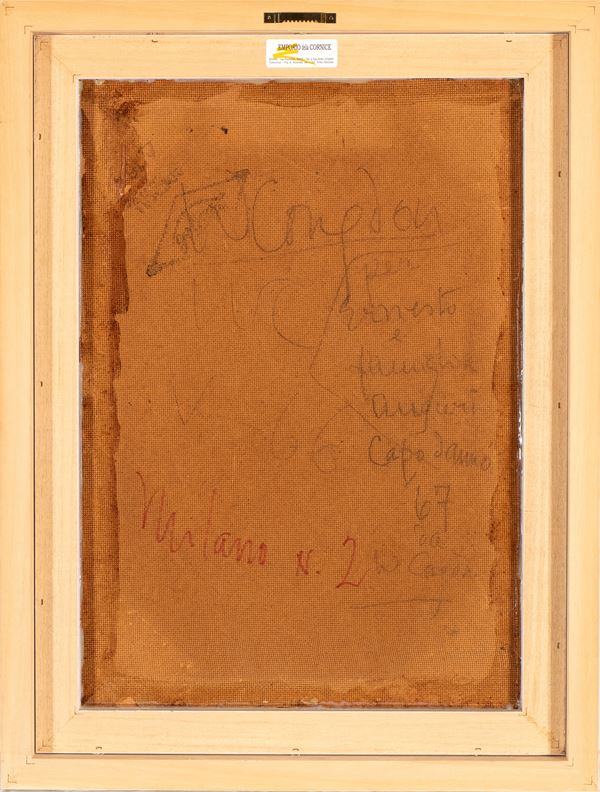 EMPORIO della CORNICE
W Congdon
per
Ernesto
e
famiglia
auguri
Capodanno
67
da
W Congdon
V 66
Milano N. 2